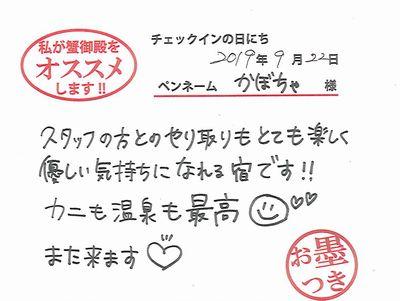 私が蟹御殿を
オススメ
します!!
チェックインの日にち
2019年9月22日
ペンネーム かぼちゃ 様
スタッフの方とのやり取りもとても楽しく
優しい気持ちになれる宿です!!
カニも温泉も最高
また来ます
お墨
つき